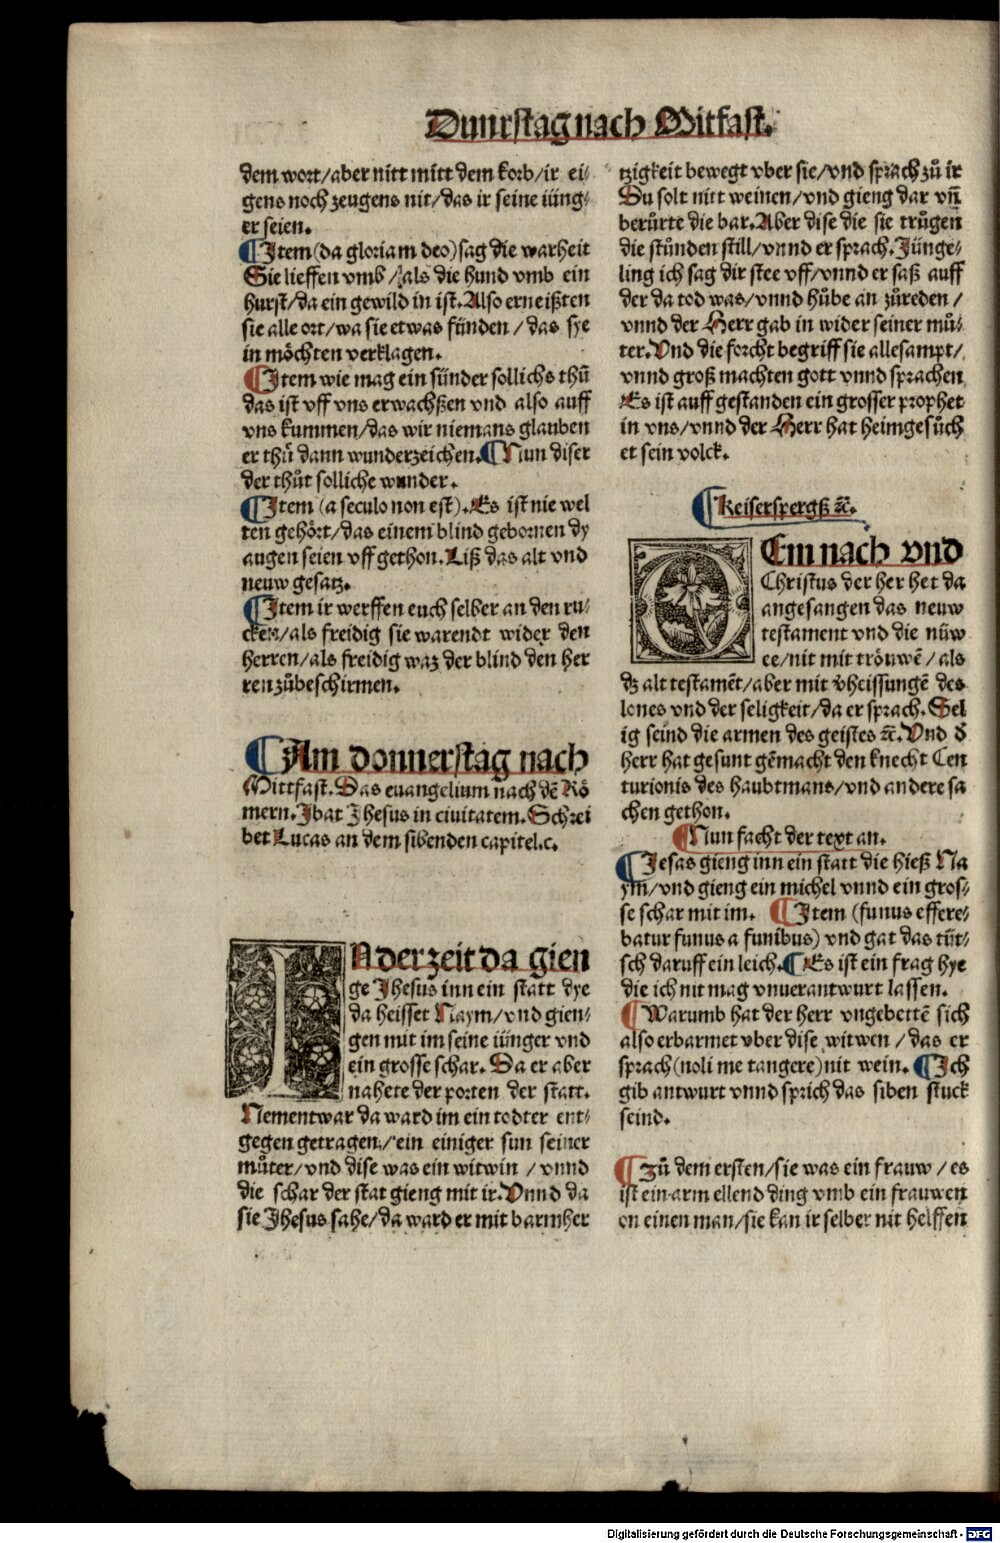 Dunrstag nach Mitfast.
dem wort/aber nitt mitt dem korb/ir ei-
gens noch zeugens nit/das ir seine iüng-
er seien.
¶Item (da gloriam deo) sag die warheit
Sie lieffen vmb/als die hund vmb ein
hurst/da ein gewild in ist. Also erneißten
sie alle ort/wa sie etwas fünden/das sye
in möchten verklagen.
¶Item wie mag ein sünder sollichs thů
das ist vff vns erwachßen vnd also auff
vns kummen/das wir niemans glauben
er thů dann wunderzeichen. ¶Nun diser
der thůt solliche wunder.
¶Item (a seculo non est). Es ist nie wel
ten gehört/das einem blind gebornen dy
augen seien vff gethon. Liß das alt vnd
neuw gesatz.
¶Item ir werffen euch selber an den ru-
cken/als freidig sie warendt wider den
herren/als freidig waz der blind den her
ren zůbeschirmen.
¶Am donnerstag nach
Mittfast. Das euangelium nach dē Rö
mern. Ibat Jhesus in ciuitatem. Schrei
bet Lucas an dem sibenden capitel.c.
IN der zeit da gien
ge Jhesus inn ein statt dye
da heisset Naym/vnd gien-
gen mit im seine iünger vnd
ein grosse schar. Da er aber
nahete der porten der statt.
Nementwar da ward im ein todter ent-
gegen getragen/ein einiger sun seiner
můter/vnd dise was ein witwin/vnnd
die schar der stat gieng mit ir. Vnnd da
sie Jhesus sahe/da ward er mit barmher
tzigkeit bewegt vber sie/vnd sprach zů ir
Du solt nitt weinen/vnd gieng dar vn̄
berůrte die bar. Aber dise die sie trůgen
die stůnden still/vnnd er sprach. Jünge-
ling ich sag dir stee vff/vnnd er saß auff
der da tod was/vnnd hůbe an zůreden/
vnnd der Herr gab in wider seiner mů-
ter. Vnd die forcht begriff sie allesampt/
vnnd groß machten gott vnnd sprachen
Es ist auff gestanden ein grosser prophet
in vns/vnnd der Herr hat heimgesůch
et sein volck.
¶Keiserspergß ꝛc.
Em nach vnd
Christus der her het da
angesangen das neuw
testament vnd die nüw
ee/nit mit tröuwē/als
dz alt testamēt/aber mit v̄heissungē des
lones vnd der seligkeit/da er sprach. Sel
ig seind die armen des geistes ꝛc. Vnd d̄
herr hat gesunt gēmacht den knecht Cen
turionis des haubtmans/vnd andere sa
chen gethon.
¶Nun facht der text an.
¶Jesas gieng inn ein statt die hieß Na
ym/vnd gieng ein michel vnnd ein gros-
se schar mit im. ¶Item (funus effere-
batur funus a funibus) vnd gat das tüt-
sch daruff ein leich. ¶Es ist ein frag hye
die ich nit mag vnuerantwurt lassen.
¶Warumb hat der herr vngebettē sich
also erbarmet vber dise witwen/das er
sprach (noli me tangere) nit wein. ¶Ich
gib antwurt vnnd sprich das siben stuck
seind.
¶Zů dem ersten/sie was ein frauw/es
ist ein arm ellend ding vmb ein frauwen
on einen man/sie kan ir selber nit helffen
Digitalisierung gefördert durch die Deutsche Forschungsgemeinschaft - DFG